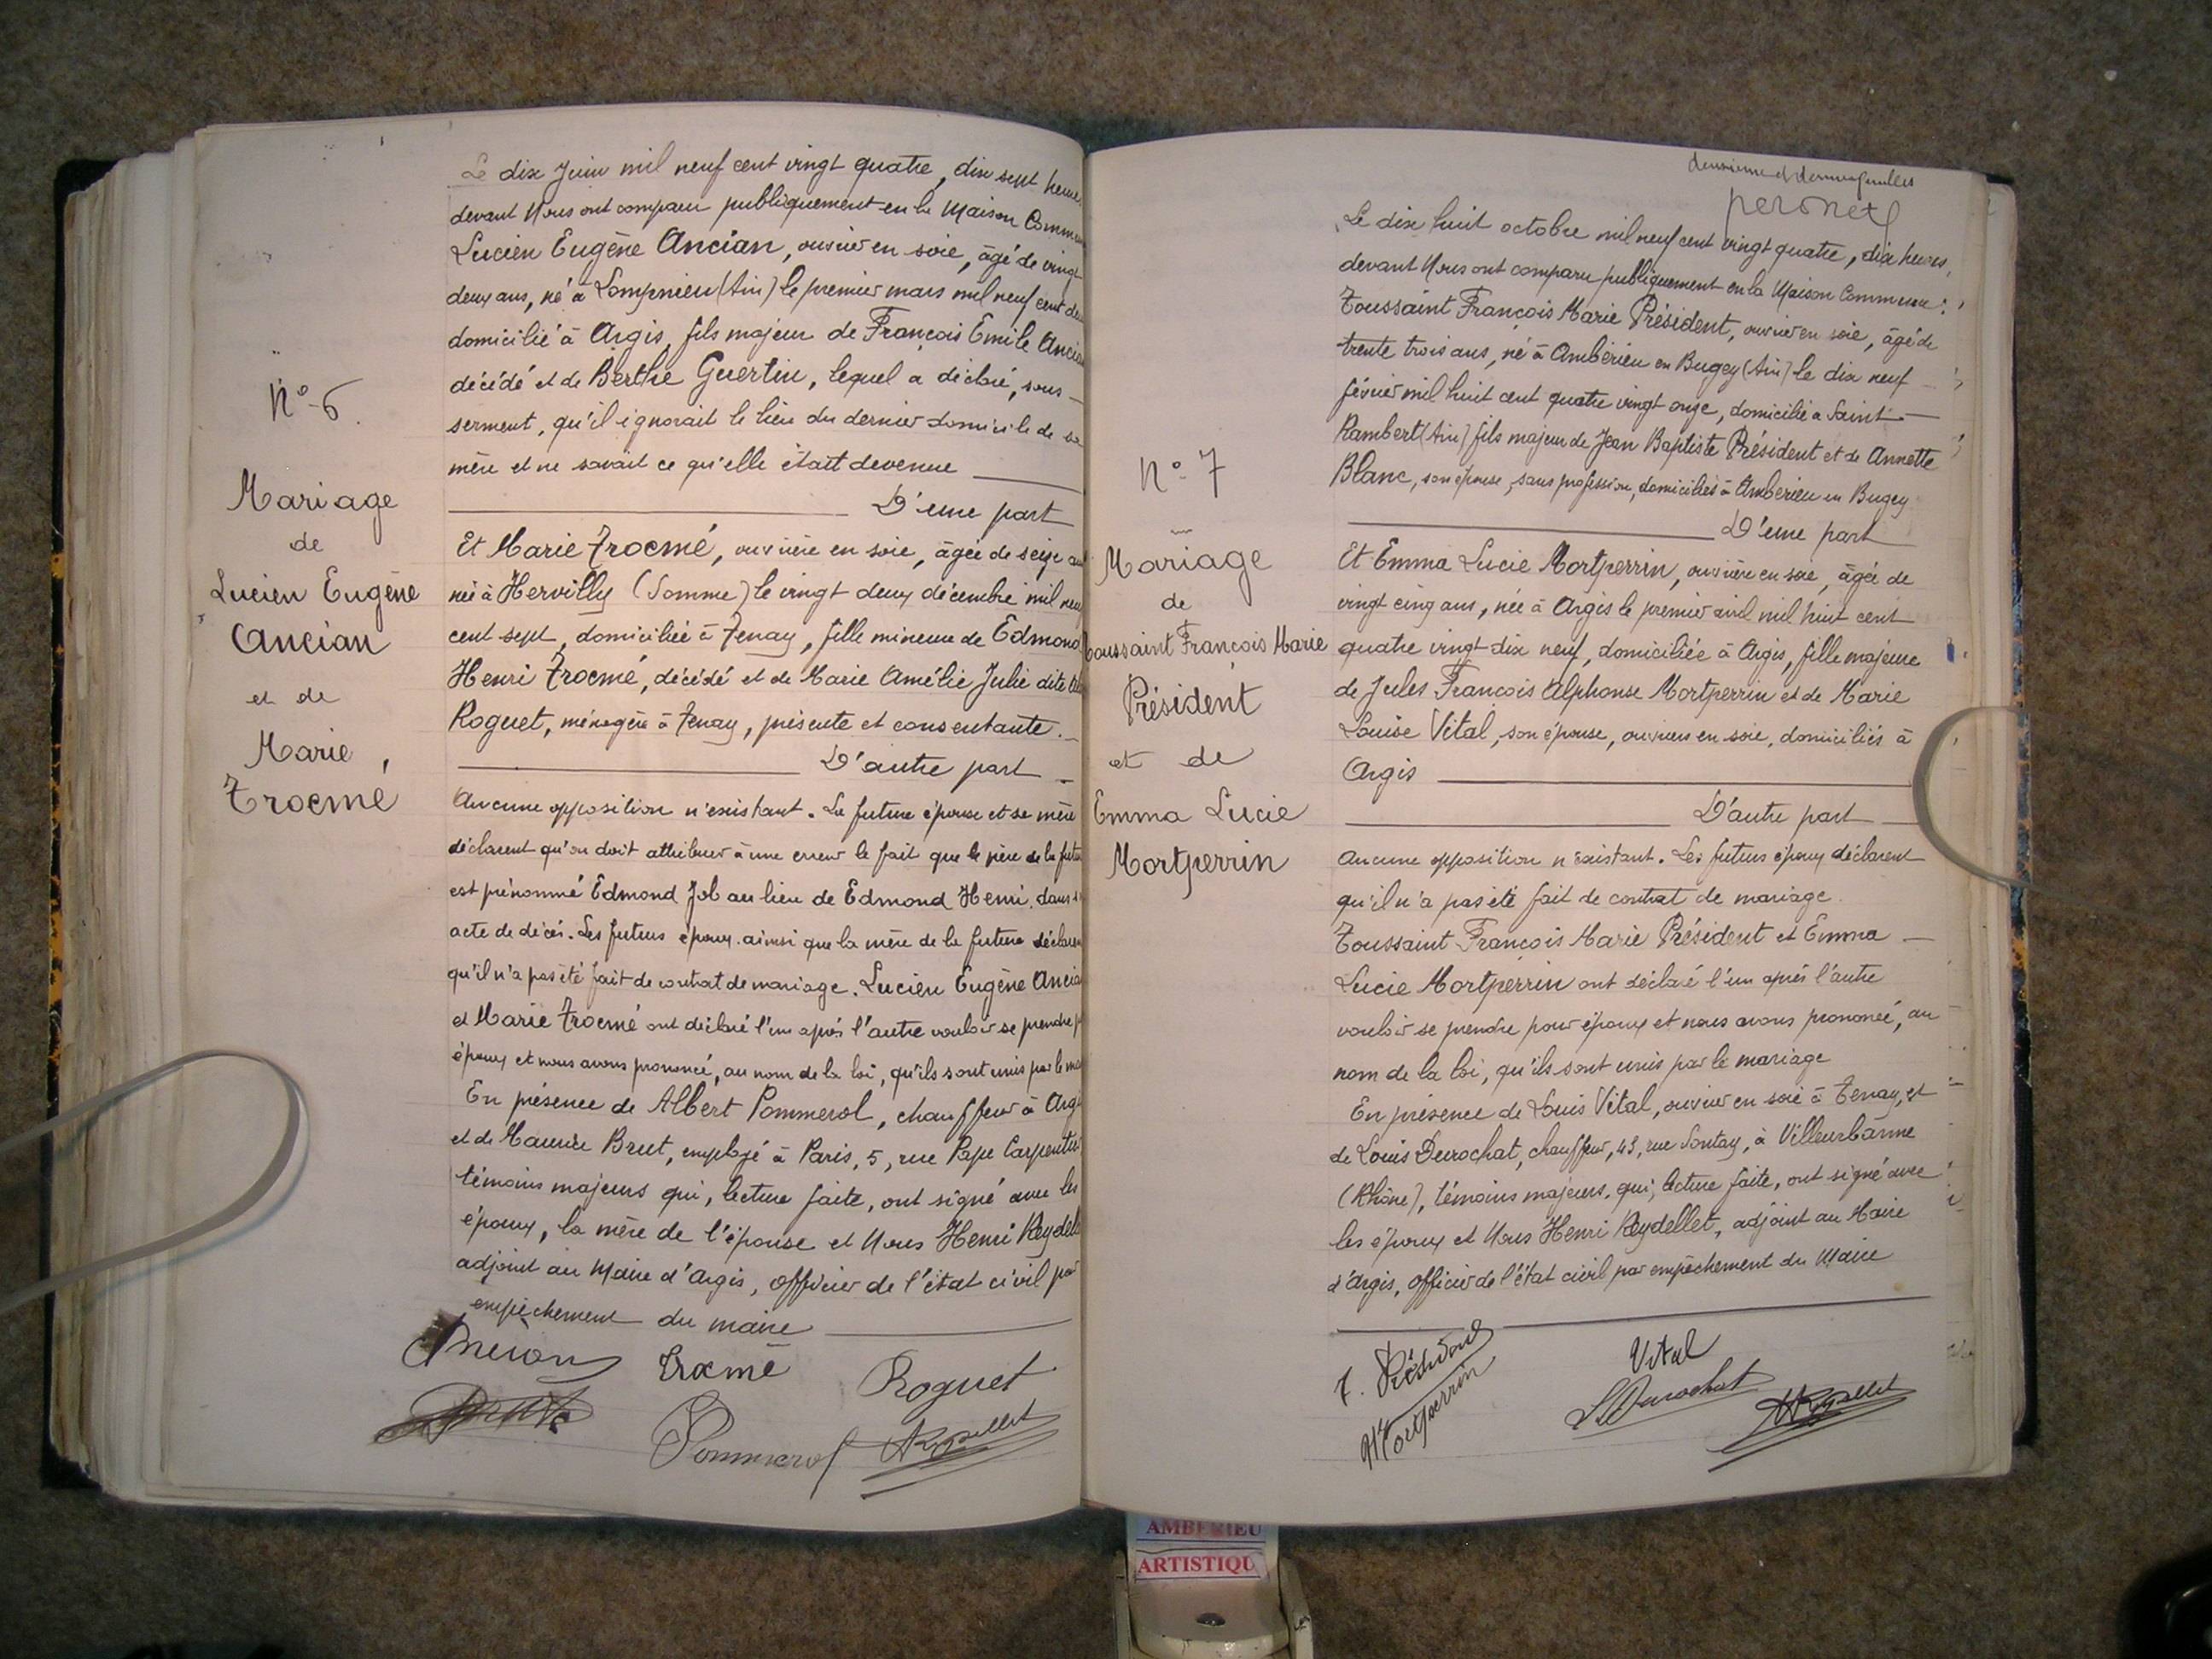 N° 6
Mariage
de
Lucien Eugène
Ancian
et de
Marie
Trocmé
Le dix Juin mil neuf cent vingt quatre, dix sept heures
devant Nous ont comparu publiquement en la Maison Commune
Lucien Eugène Ancian, ouvrier en soie, âgé de vingt
deux ans, né à Lompnieu (Ain) le premier mars mil neuf cent deux
domicilié à Argis, fils majeur de François Emile Ancian
décédé et de Berthe Guertin, lequel a déclaré, sous
serment, qu'il ignorait le lieu du dernier domicile de sa
mère et ne savait ce qu'elle était devenue
D'une part
Et Marie Trocmé, ouvrière en soie, âgée de seize ans
née à Hervilly (Somme) le vingt deux décembre mil neuf
cent sept, domiciliée à Tenay, fille mineure de Edmond
Henri Trocmé, décédé et de Marie Amélie Julie dite
Roguet, ménagère à Tenay, présente et consentante.
D'autre part
Aucune opposition n'existant. La future épouse et sa mère
déclarent qu'on doit attribuer à une erreur le fait que le père de la future
est prénommé Edmond Job au lieu de Edmond Henri, dans s
acte de décès. Les futurs époux ainsi que la mère de la future déclarent
qu'il n'a pas été fait de contrat de mariage. Lucien Eugène Ancian
et Marie Trocmé ont déclaré l'un après l'autre vouloir se prendre p
époux et nous avons prononcé, au nom de la loi, qu'ils sont unis par le ma
En présence de Albert Pommerol, chauffeur à Argis
et de Maurice Brut, employé à Paris, 5, rue Pape Carpentier
témoins majeurs qui, lecture faite, ont signé avec les
époux, la mère de l'épouse et Nous Henri Reydellet
adjoint au Maire d'Argis, officier de l'état civil par
empêchement du maire
Ancian Trocmé Roguet
Brut Pommerol HReydellet
deuxième et dernier feuillet
peronet
N° 7
Mariage
de
Toussaint François Marie
Président
et de
Emma Lucie
Mortperrin
Le dix huit octobre mil neuf cent vingt quatre, dix heures,
devant Nous ont comparu publiquement en la Maison Commune:
Toussaint François Marie Président, ouvrier en soie, âgé de
trente trois ans, né à Ambérieu en Bugey (Ain) le dix neuf
février mil huit cent quatre vingt onze, domicilié à Saint
Rambert (Ain) fils majeur de Jean Baptiste Président et de Annette
Blanc, son épouse, sans profession, domiciliés à Ambérieu en Bugey
D'une part
Et Emma Lucie Mortperrin, ouvrière en soie, âgée de
vingt cinq ans, née à Argis le premier avril mil huit cent
quatre vingt dix neuf, domiciliée à Argis, fille majeure
de Jules François Alphonse Mortperrin et de Marie
Louise Vital, son épouse, ouvriers en soie, domiciliés à
Argis
D'autre part
Aucune opposition n'existant. Les futurs époux déclarent
qu'il n'a pas été fait de contrat de mariage.
Toussaint François Marie Président et Emma
Lucie Mortperrin ont déclaré l'un après l'autre
vouloir se prendre pour époux et nous avons prononcé, au
nom de la loi, qu'ils sont unis par le mariage
En présence de Louis Vital, ouvrier en soie à Tenay, et
de Louis Durochat, chauffeur, 43, rue Sontay, à Villeurbanne
(Rhône), témoins majeurs, qui, lecture faite, ont signé avec
les époux et Nous Henri Reydellet, adjoint au Maire
d'Argis, officier de l'état civil par empêchement du Maire
T. Président Vital
Mortperrin LDurochat HReydellet
AMBERIEU
ARTISTIQU